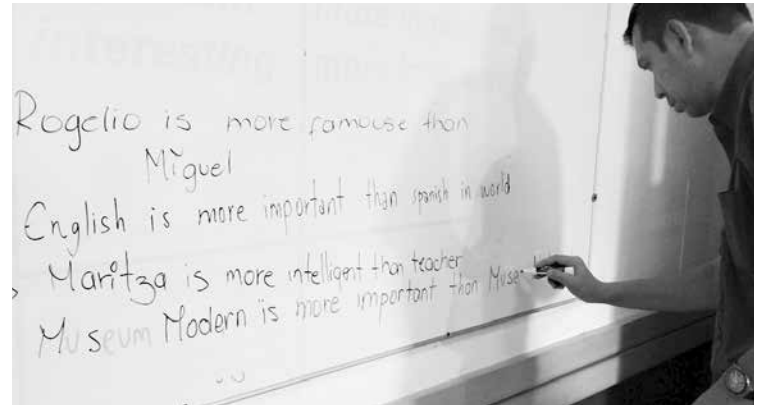 interesting more
Rogelio is more famouse than
Miguel
English is more important than spanish in world
Maritza is more intelligent than teacher
Museum Modern is more important than Muse